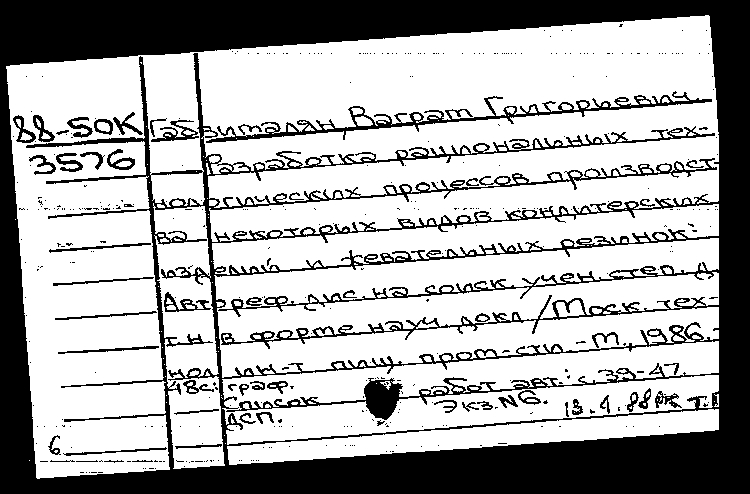 88-50К Габзималян, Ваграт Григорьевич.
3576 Разработка рациональных тех-
нологических процессов производст-
ва некоторых видов кондитерских
изделий и жевательных резинок:
Автореф. дис. на соиск. учен. степ. д.
т.н. в форме науч. докл. / Моск. тех-
нол. ин-т пищ. пром-сти. - М., 1986.-
48с.: граф.
Список работ авт.: с. 39-47.
ДСП. Экз.N6. 13.4.88
6